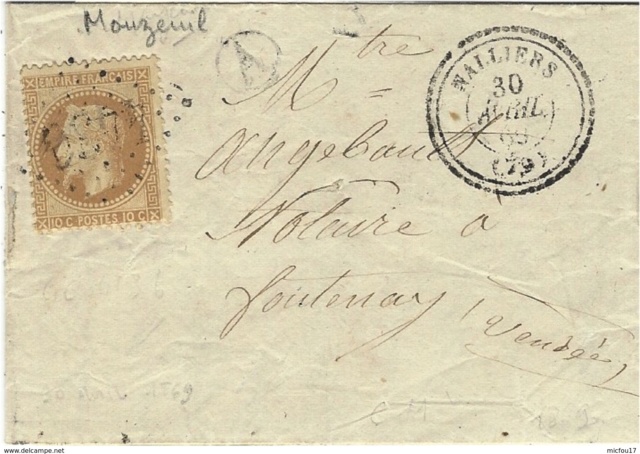 Mouzeuil
EMPIRE FRANÇAIS
10 C. POSTES 10 C.
A
NALLIERS
30
AVRIL
69
(79)
Mtre
Angebault
Notaire à
Fontenay (Vendée)
30 Avril 1869
www.delcampe.net
micfou17